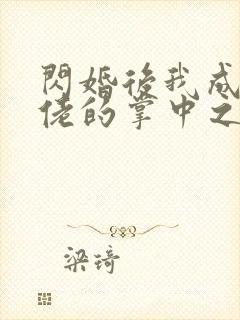 閃婚後我成
佬的掌中之
梁琦